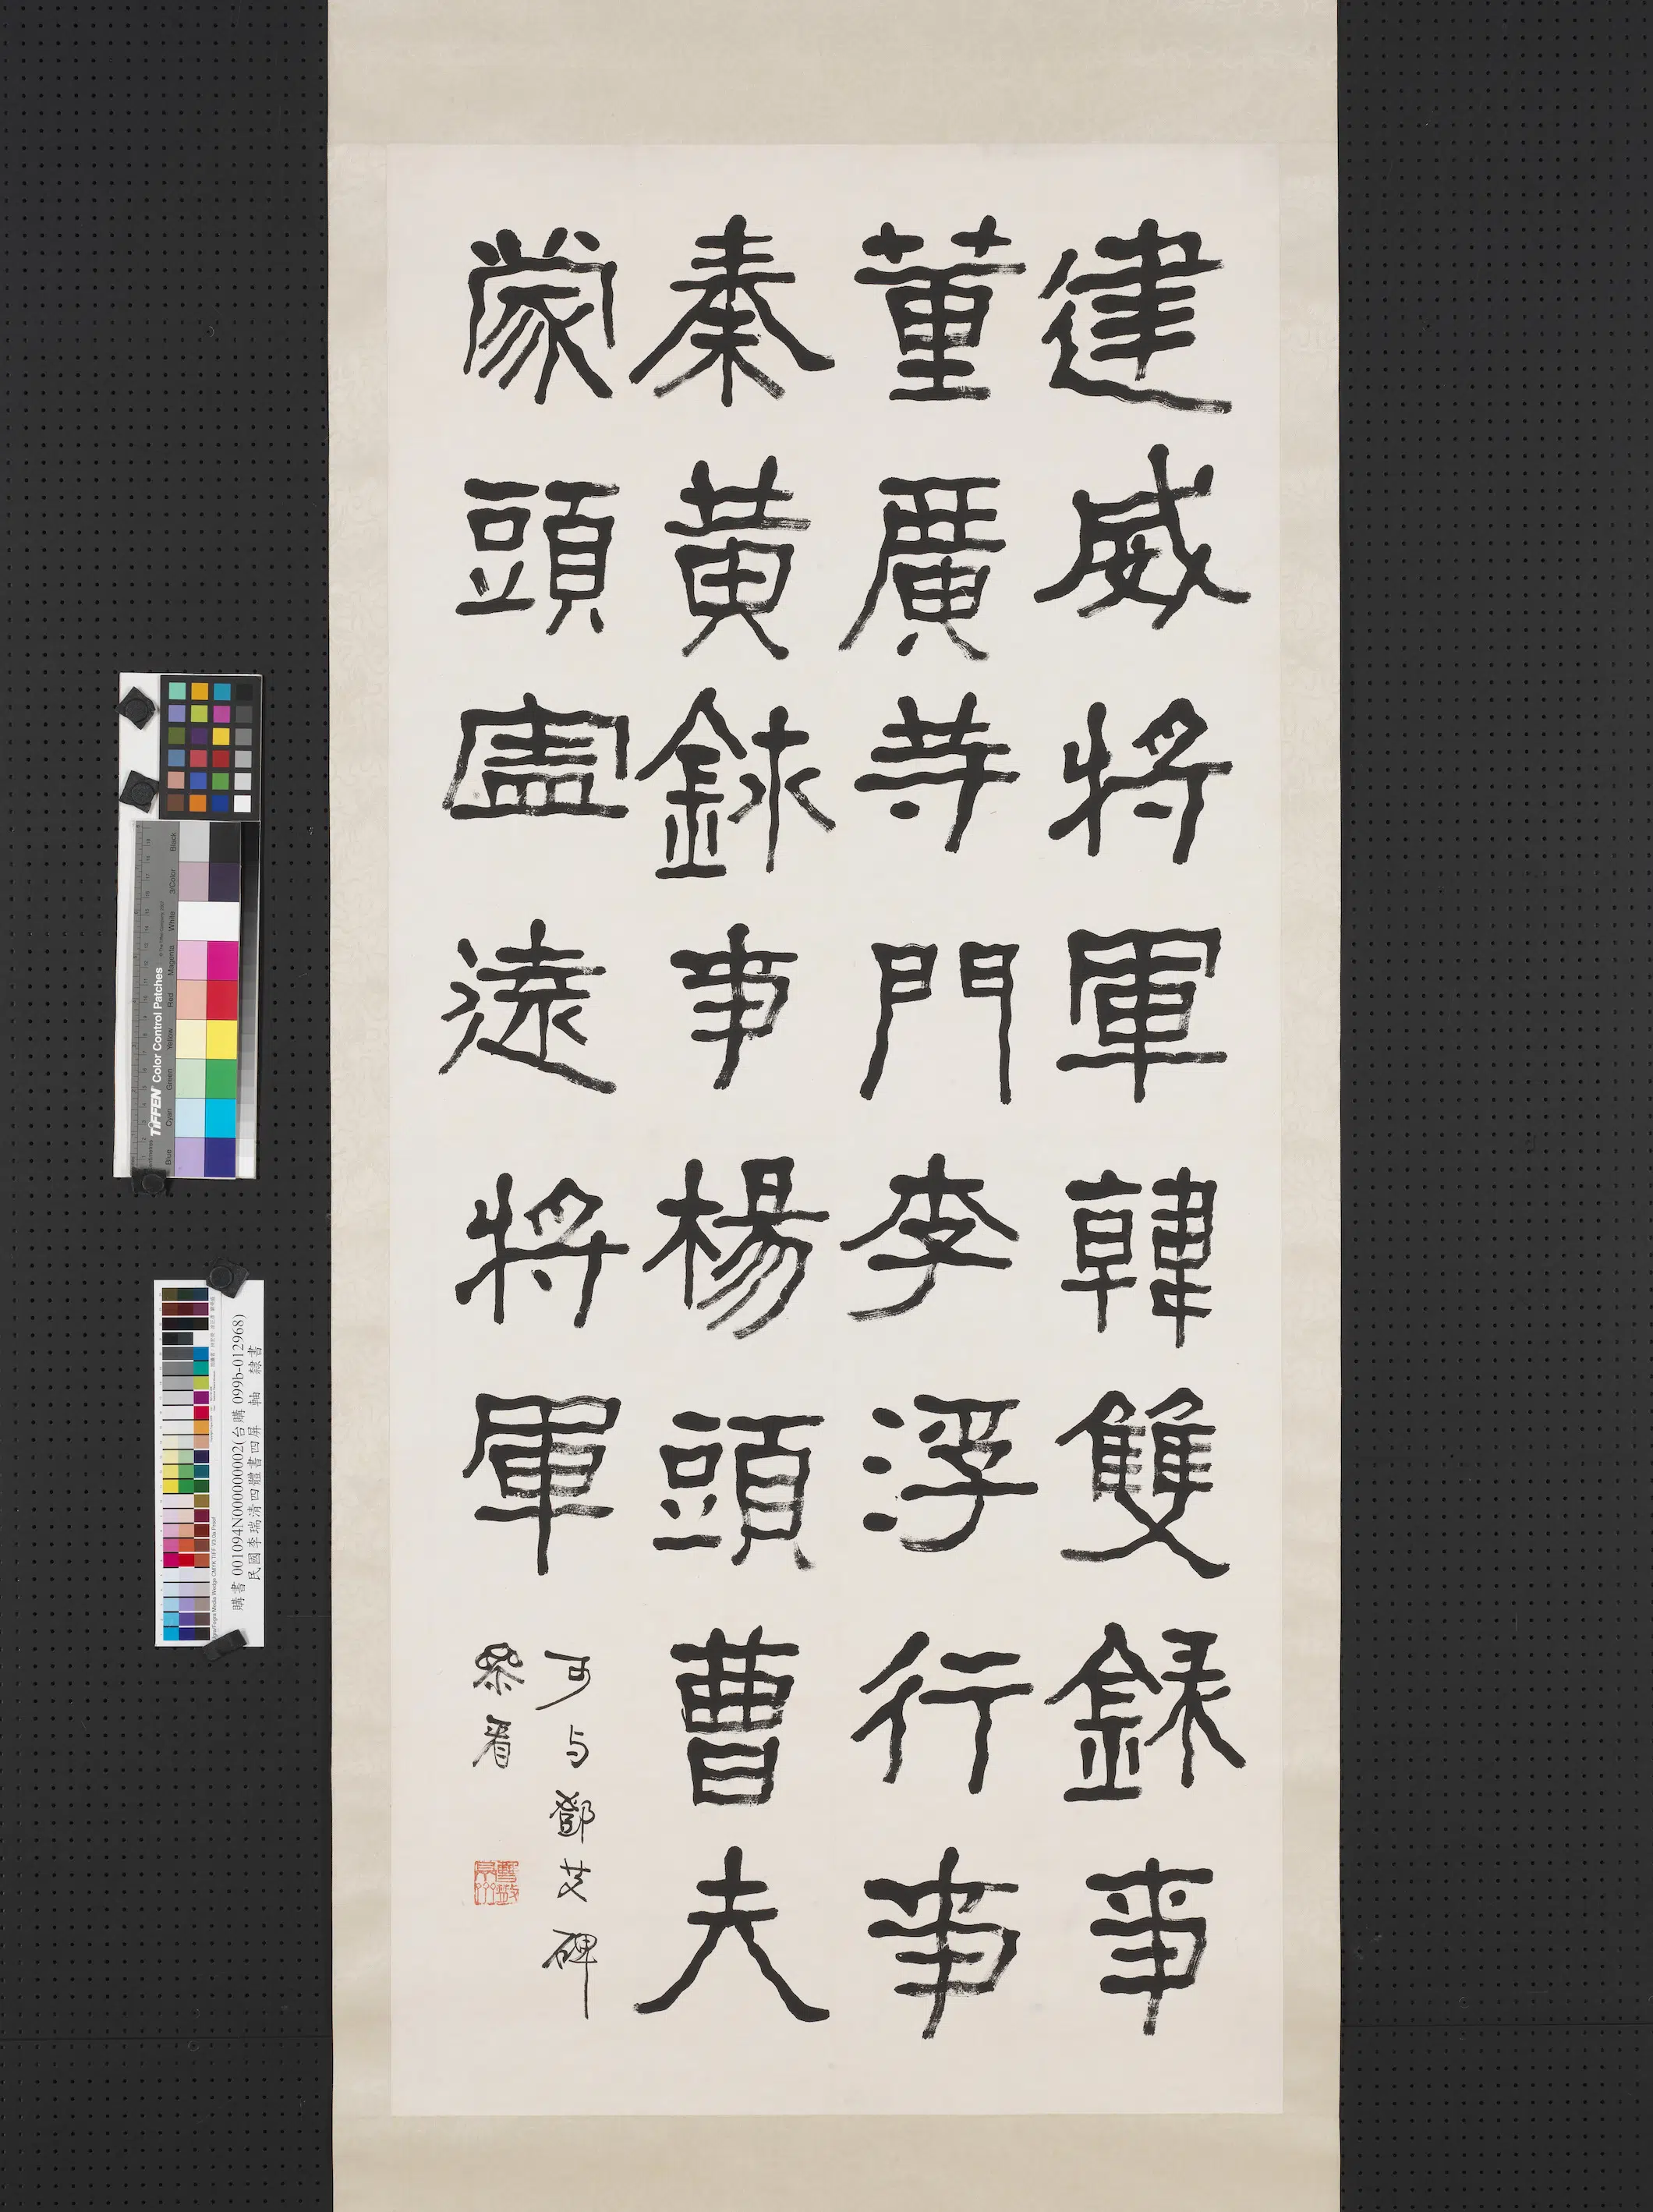 建威將軍韓雙錄事
董廣寺門李浮行事
秦黃錄事楊頭曹夫
蒙頭寧遠將軍
可与鄧艾碑
叅看
TIFFEN Color Control Patches
Blue Cyan Green Yellow Red Magenta White 3/Color Black
購書 001094N000000002(台購 099b-012968)
民國李瑞清四體書四屏 軸 隸書